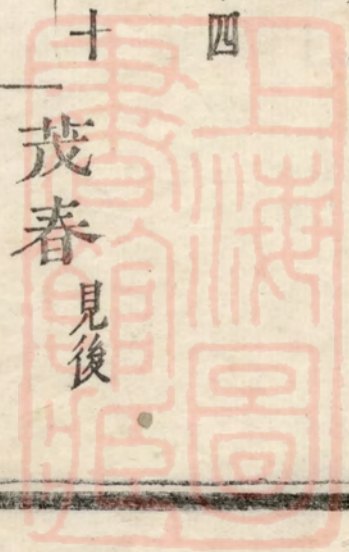 四
十
茂春 見後
上海圖
書館藏